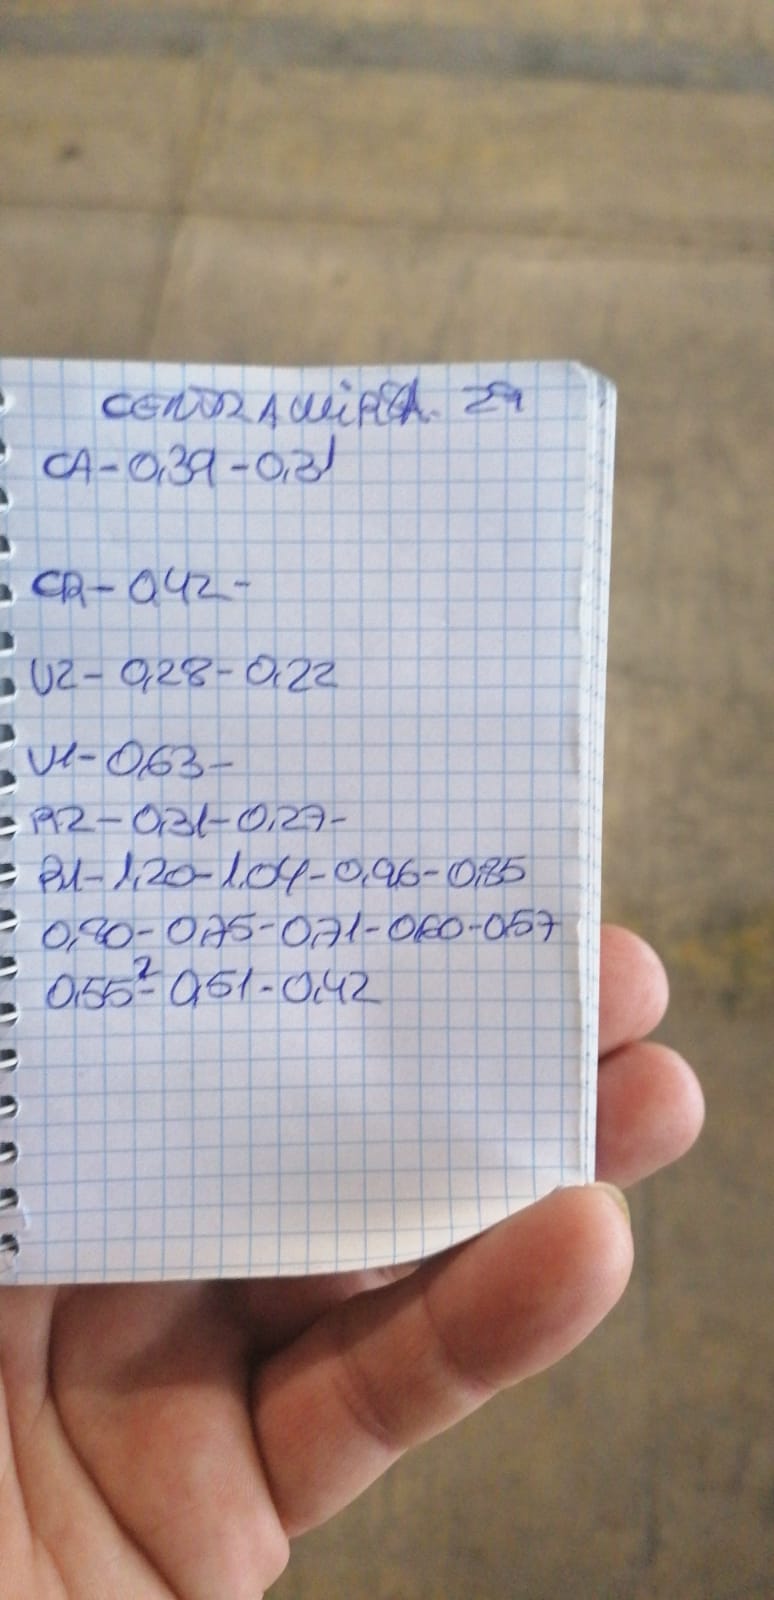 CENTRAMIRSA. 29
CA-0,39-0,31
CR-0,42-
V2-0,28-0,22
V1-0,63-
R2-0,31-0,27-
R1-1,20-1,04-0,96-0,85
0,80-0,75-0,71-0,60-0,57
0,55²-0,51-0,42